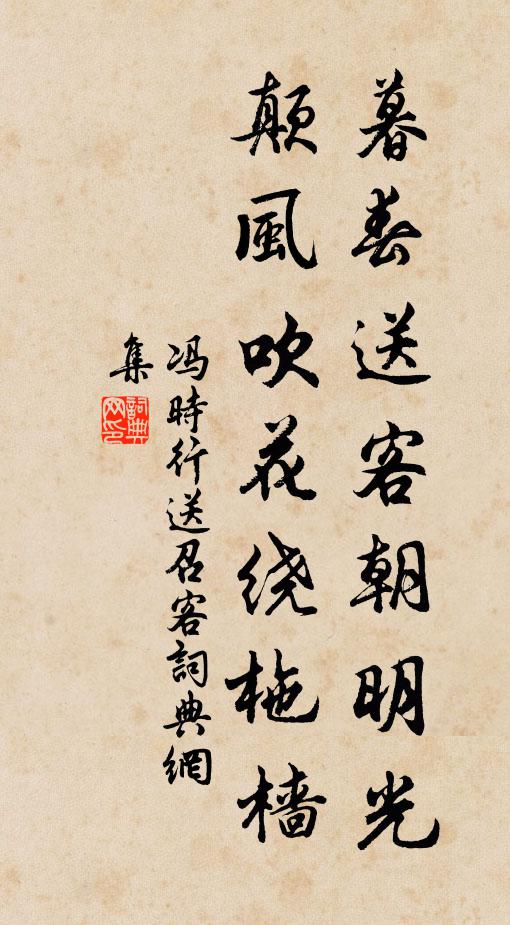 暮春送客朝明光
颠風吹花绕柂檣
冯時行送召客詞典網
集
詞典网印